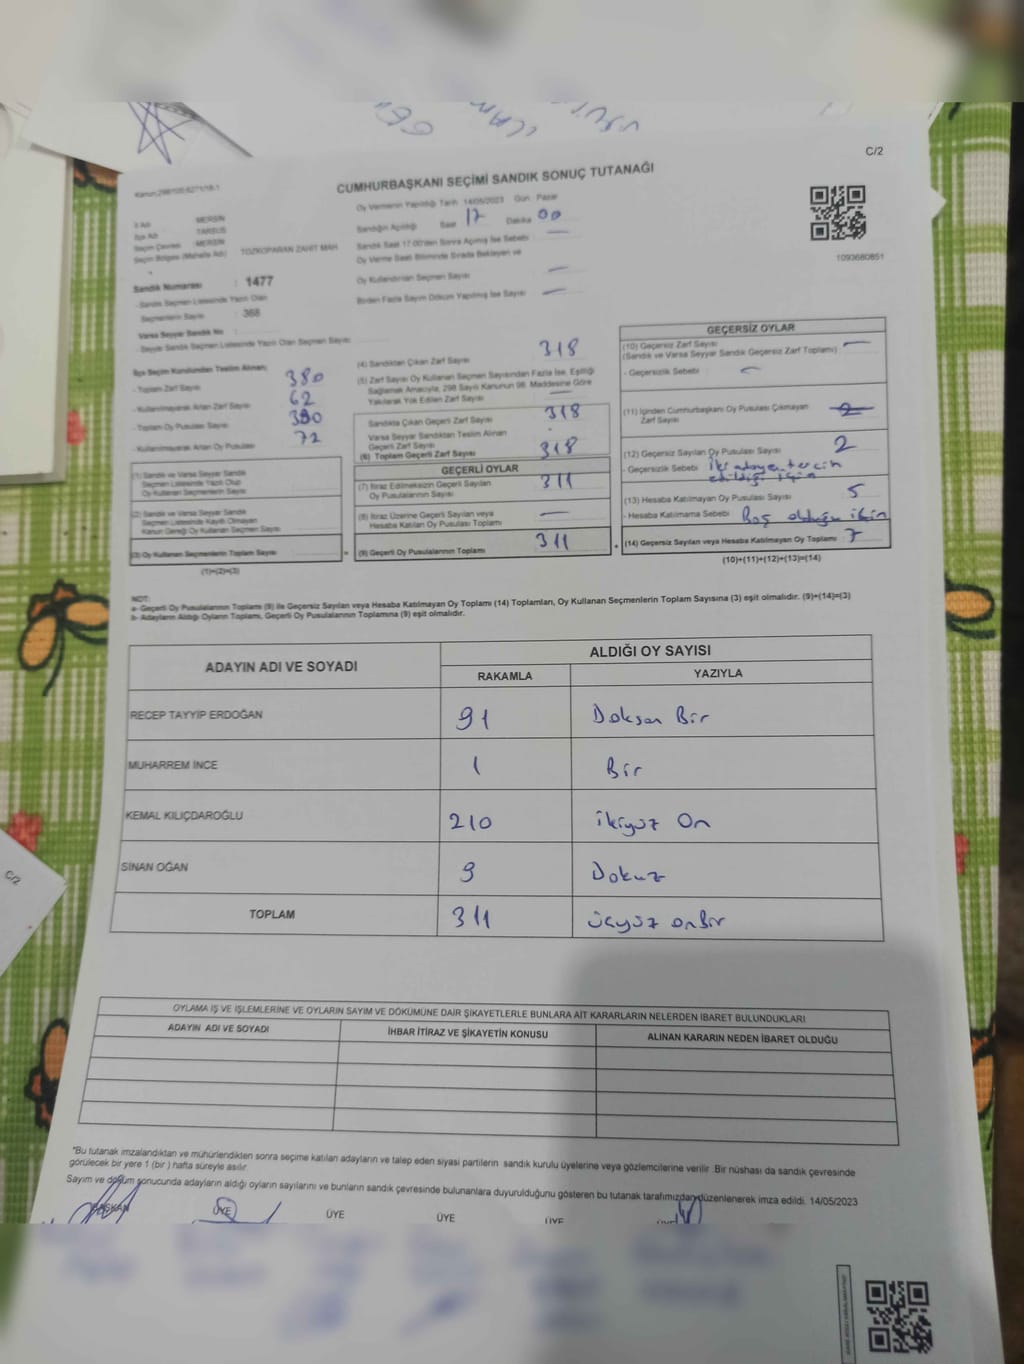 C/2
CUMHURBAŞKANI SEÇİMİ SANDIK SONUÇ TUTANAĞI
Kanun:298/105,6271/18-1
Oy Vermenin Yapıldığı Tarih 14/05/2023 Gün Pazar
İl Adı MERSİN
Sandığın Açıldığı Saat 17 Dakika 00
İlçe Adı TARSUS
Seçim Çevresi : MERSİN
Sandık Saat 17.00'den Sonra Açılmış İse Sebebi —
Seçim Bölgesi (Mahalle Adı) TOZKOPARAN ZAHİT MAH
Oy Verme Saati Bitiminde Sırada Bekleyen ve
Oy Kullandırılan Seçmen Sayısı —
1093680851
Sandık Numarası : 1477
Birden Fazla Sayım Döküm Yapılmış İse Sayısı —
- Sandık Seçmen Listesinde Yazılı Olan
Seçmenlerin Sayısı : 368
Varsa Seyyar Sandık No :
- Seyyar Sandık Seçmen Listesinde Yazılı Olan Seçmen Sayısı
İlçe Seçim Kurulundan Teslim Alınan;
- Toplam Zarf Sayısı 380
- Kullanılmayarak Artan Zarf Sayısı 62
- Toplam Oy Pusulası Sayısı
- Kullanılmayarak Artan Oy Pusulası 72
(1) Sandık ve Varsa Seyyar Sandık
Seçmen Listesinde Yazılı Olup
Oy Kullanan Seçmenlerin Sayısı
(2) Sandık ve Varsa Seyyar Sandık
Seçmen Listesinde Kayıtlı Olmayan
Kanun Gereği Oy Kullanan Seçmenlerin Sayısı
(3) Oy Kullanan Seçmenlerin Toplam Sayısı =
(1)+(2)=(3)
(4) Sandıktan Çıkan Zarf Sayısı 318
(5) Zarf Sayısı Oy Kullanan Seçmen Sayısından Fazla İse, Eşitliği
Sağlamak Amacıyla, 298 Sayılı Kanunun 98. Maddesine Göre
Yakılarak Yok Edilen Zarf Sayısı —
Sandıkta Çıkan Geçerli Zarf Sayısı 318
Varsa Seyyar Sandıktan Teslim Alınan
Geçerli Zarf Sayısı
(6) Toplam Geçerli Zarf Sayısı 318
GEÇERLİ OYLAR
(7) İtiraz Edilmeksizin Geçerli Sayılan
Oy Pusulalarının Sayısı 311
(8) İtiraz Üzerine Geçerli Sayılan veya
Hesaba Katılan Oy Pusulası Toplamı —
(9) Geçerli Oy Pusulalarının Toplamı 311 +
GEÇERSİZ OYLAR
(10) Geçersiz Zarf Sayısı —
(Sandık ve Varsa Seyyar Sandık Geçersiz Zarf Toplamı)
- Geçersizlik Sebebi —
(11) İçinden Cumhurbaşkanı Oy Pusulası Çıkmayan
Zarf Sayısı 2
(12) Geçersiz Sayılan Oy Pusulası Sayısı 2
- Geçersizlik Sebebi İki adayen tercih
edildiği için
(13) Hesaba Katılmayan Oy Pusulası Sayısı 5
- Hesaba Katılmama Sebebi Boş olduğu için
(14) Geçersiz Sayılan veya Hesaba Katılmayan Oy Toplamı 7
(10)+(11)+(12)+(13)=(14)
NOT:
a- Geçerli Oy Pusulalarının Toplamı (9) ile Geçersiz Sayılan veya Hesaba Katılmayan Oy Toplamı (14) Toplamları, Oy Kullanan Seçmenlerin Toplam Sayısına (3) eşit olmalıdır. (9)+(14)=(3)
b- Adayların Aldığı Oyların Toplamı, Geçerli Oy Pusulalarının Toplamına (9) eşit olmalıdır.
ADAYIN ADI VE SOYADI
ALDIĞI OY SAYISI
RAKAMLA YAZIYLA
RECEP TAYYİP ERDOĞAN 91 Doksan Bir
MUHARREM İNCE 1 Bir
KEMAL KILIÇDAROĞLU 210 ikiyüz On
SİNAN OĞAN 9 Dokuz
TOPLAM 311 üçyüz onBir
C/2
OYLAMA İŞ VE İŞLEMLERİNE VE OYLARIN SAYIM VE DÖKÜMÜNE DAİR ŞİKAYETLERLE BUNLARA AİT KARARLARIN NELERDEN İBARET BULUNDUKLARI
ADAYIN ADI VE SOYADI İHBAR İTİRAZ VE ŞİKAYETİN KONUSU ALINAN KARARIN NEDEN İBARET OLDUĞU
"Bu tutanak imzalandıktan ve mühürlendikten sonra seçime katılan adayların ve talep eden siyasi partilerin sandık kurulu üyelerine veya gözlemcilerine verilir. Bir nüshası da sandık çevresinde
görülecek bir yere 1 (bir ) hafta süreyle asılır.
Sayım ve döküm sonucunda adayların aldığı oyların sayılarını ve bunların sandık çevresinde bulunanlara duyurulduğunu gösteren bu tutanak tarafımızdan düzenlenerek imza edildi. 14/05/2023
BAŞKAN ÜYE ÜYE ÜYE ÜYE ÜYE